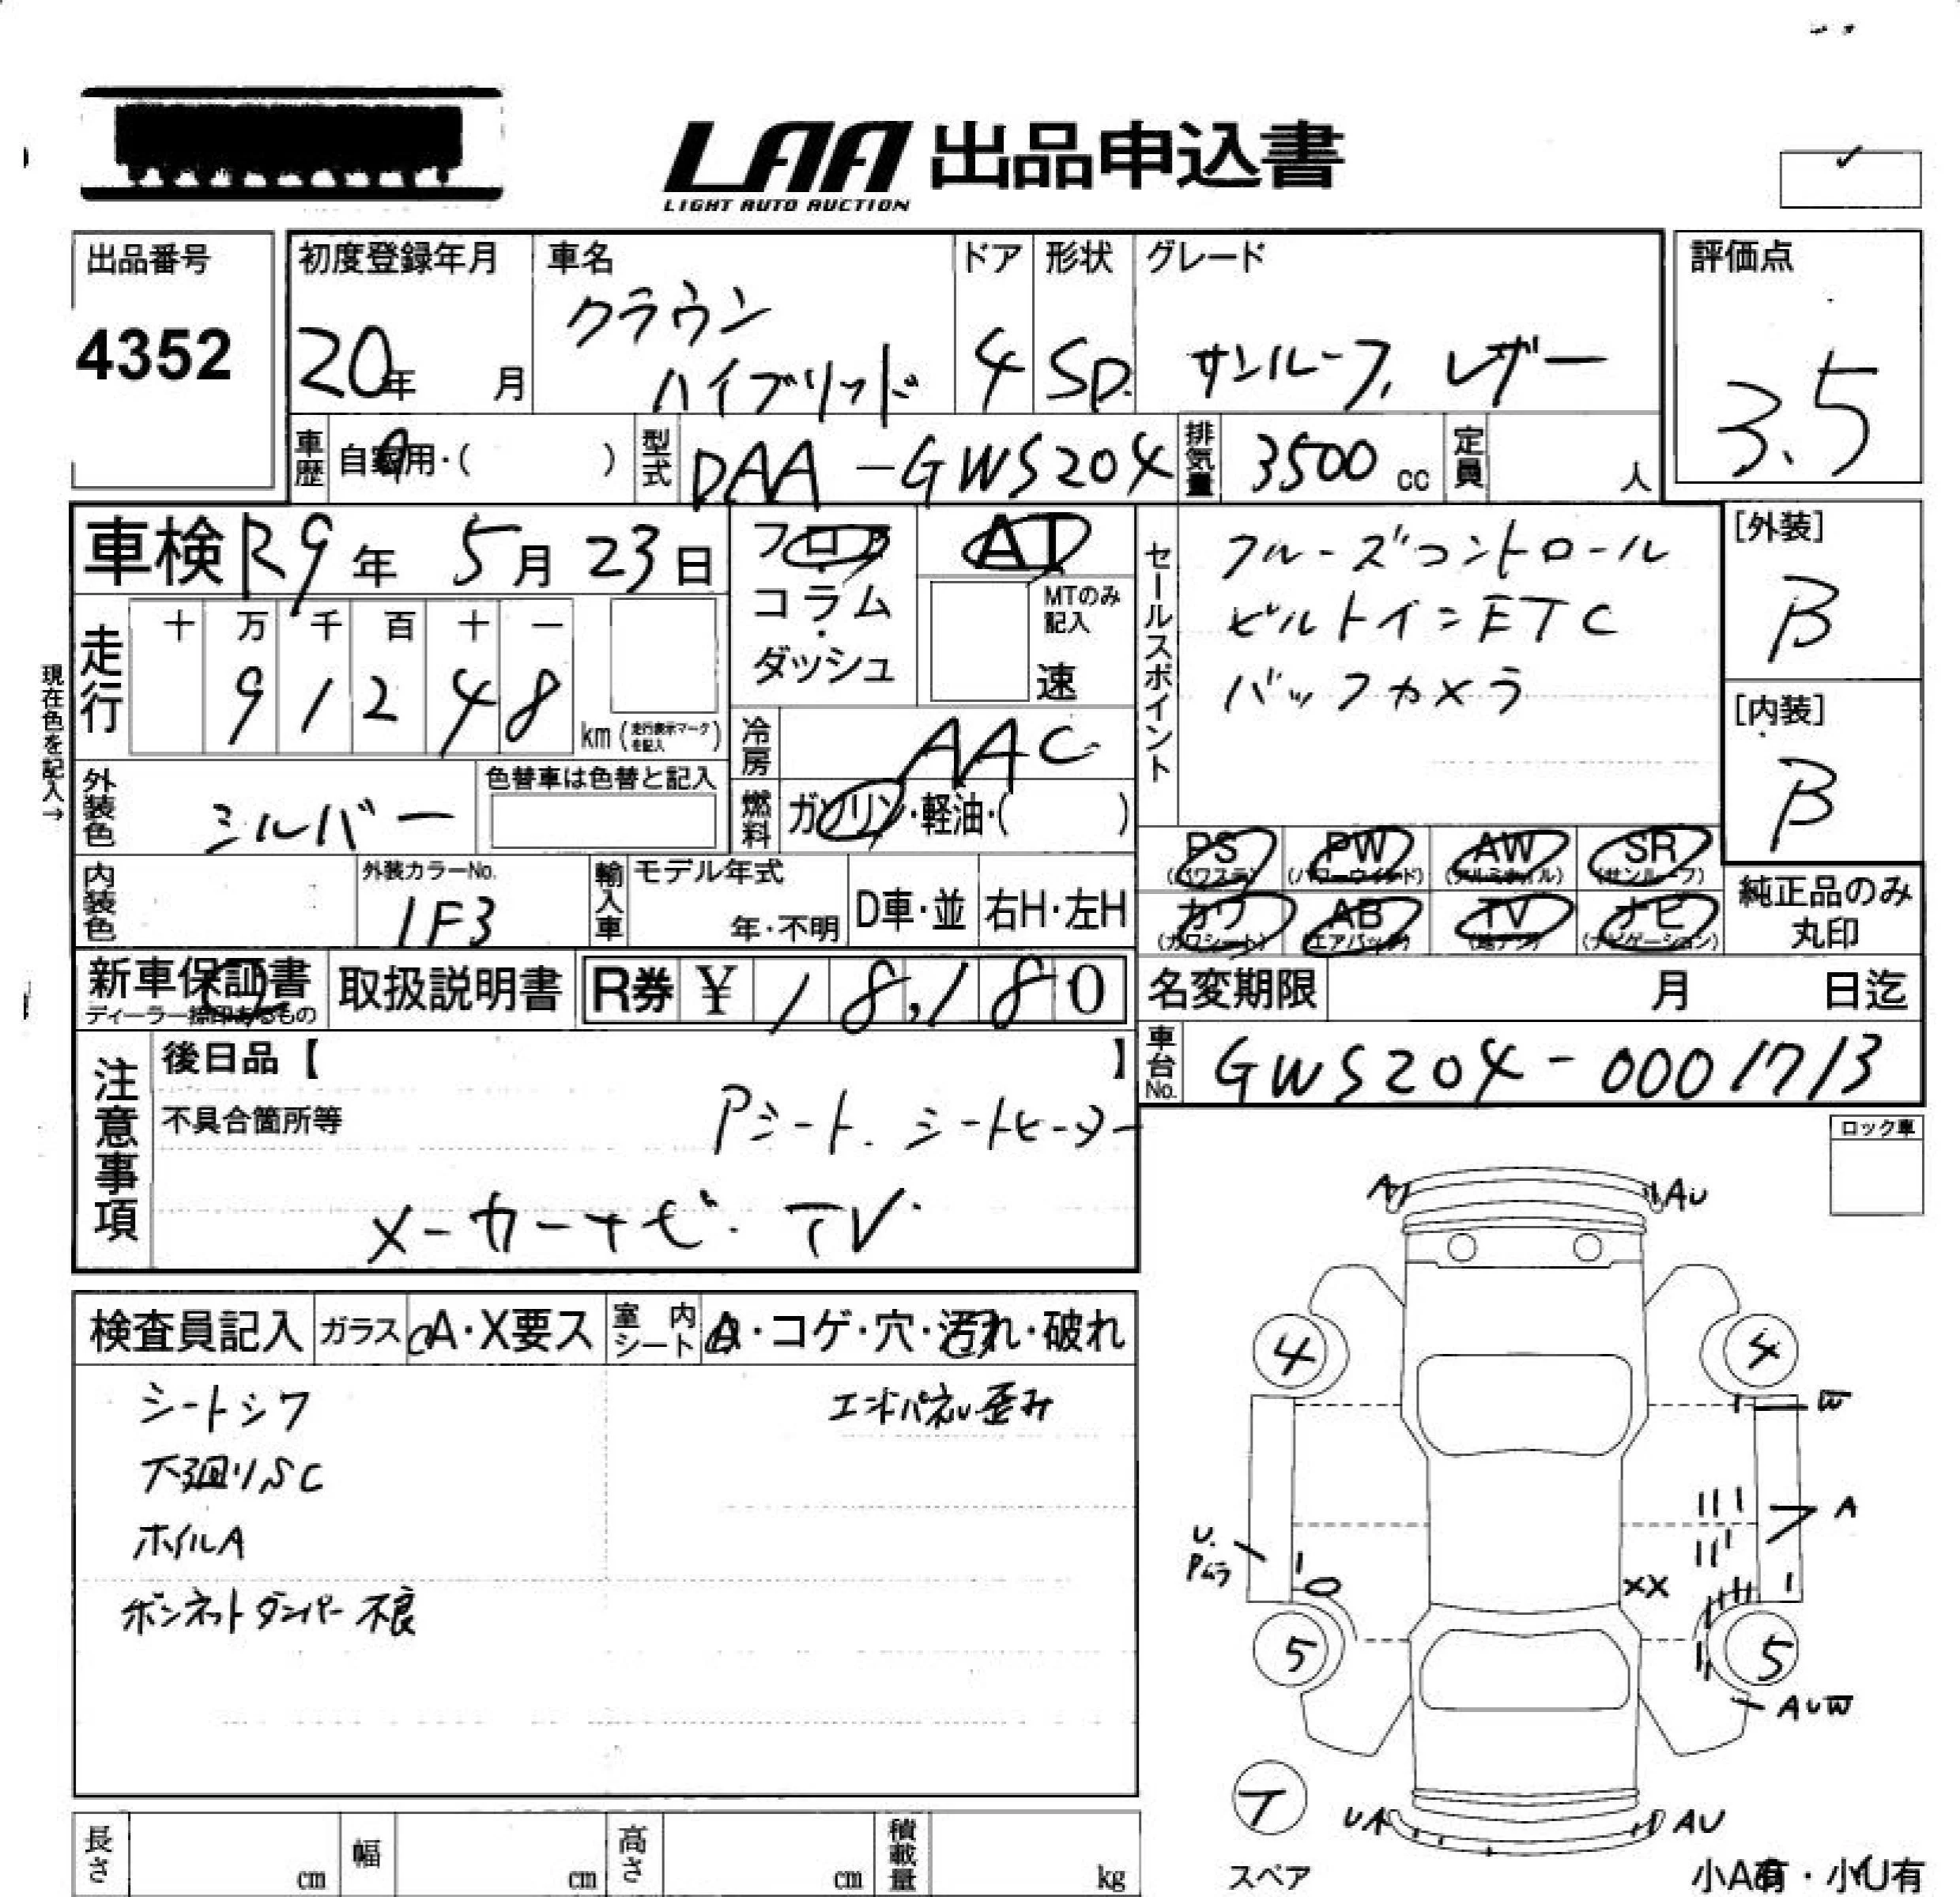 LAA 出品申込書
LIGHT AUTO AUCTION
出品番号
4352
初度登録年月
20年 月
車名
クラウン
ハイブリッド
ドア
4
形状
SD.
グレード
サンルーフ, レザー
評価点
3.5
車歴
自家用・( )
型式
DAA-GWS204
排気量
3500 cc
定員
人
車検 R9年 5月 23日
現在色を記入→
走行
十 万 千 百 十 一
9 1 2 4 8
km (走行表示マークを記入)
フロア
・
コラム
・
ダッシュ
AT
MTのみ記入
速
冷房
AAC
燃料
ガソリン・軽油・( )
セールスポイント
クルーズコントロール
ビルトインETC
バックカメラ
[外装]
B
[内装]
B
外装色
シルバー
色替車は色替と記入
内装色
外装カラーNo.
1F3
輸入車
モデル年式
年・不明
D車・並
右H・左H
PS
(パワステ)
PW
(パワーウインド)
AW
(アルミホイル)
SR
(サンルーフ)
カワ
(カワシート)
AB
(エアバック)
TV
(地デジ)
ナビ
(ナビゲーション)
純正品のみ
丸印
新車保証書
ディーラー捺印あるもの
取扱説明書
R券 ¥ 18,180
名変期限
月 日迄
車台No.
GWS204-0001713
注意事項
後日品【 】
不具合箇所等
Pシート. シートヒーター
メーカーナビ・TV
ロック車
検査員記入
ガラス
A・X要ス
室内シート
A・コゲ・穴・汚れ・破れ
シートシワ
エンドパネル歪み
下廻りSC
ホイルA
ボンネットダンパー不良
A
AU
4
4
W
A
U.
Pムラ
XX
5
5
AUW
T
スペア
UA
AU
小A有・小U有
長さ
cm
幅
cm
高さ
cm
積載量
kg